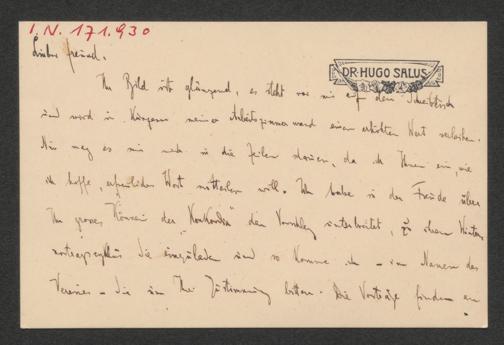 I.N. 171.930
Lieber Freund.
DR. HUGO SALUS
Ihr Bild ist glänzend, es steht vor mir auf dem Schreibtisch
und wird in Kürze meiner Arbeitszimmerwand einen erhöhten Wert verleihen.
Nun mag es mir in die Zeilen schauen, da ich Ihnen ein, wie
ich hoffe, erfreuliches Wort mitteilen will. Ich habe in der Freude über
Ihr groses Können der "Konkordia" den Vorschlag unterbreitet, zu ihrem Winter-
vortragszyklus Sie einzuladen und so komme ich – im Namen des
Vereines – Sie um Ihre Zustimmung bitten. Die Vorträge finden an